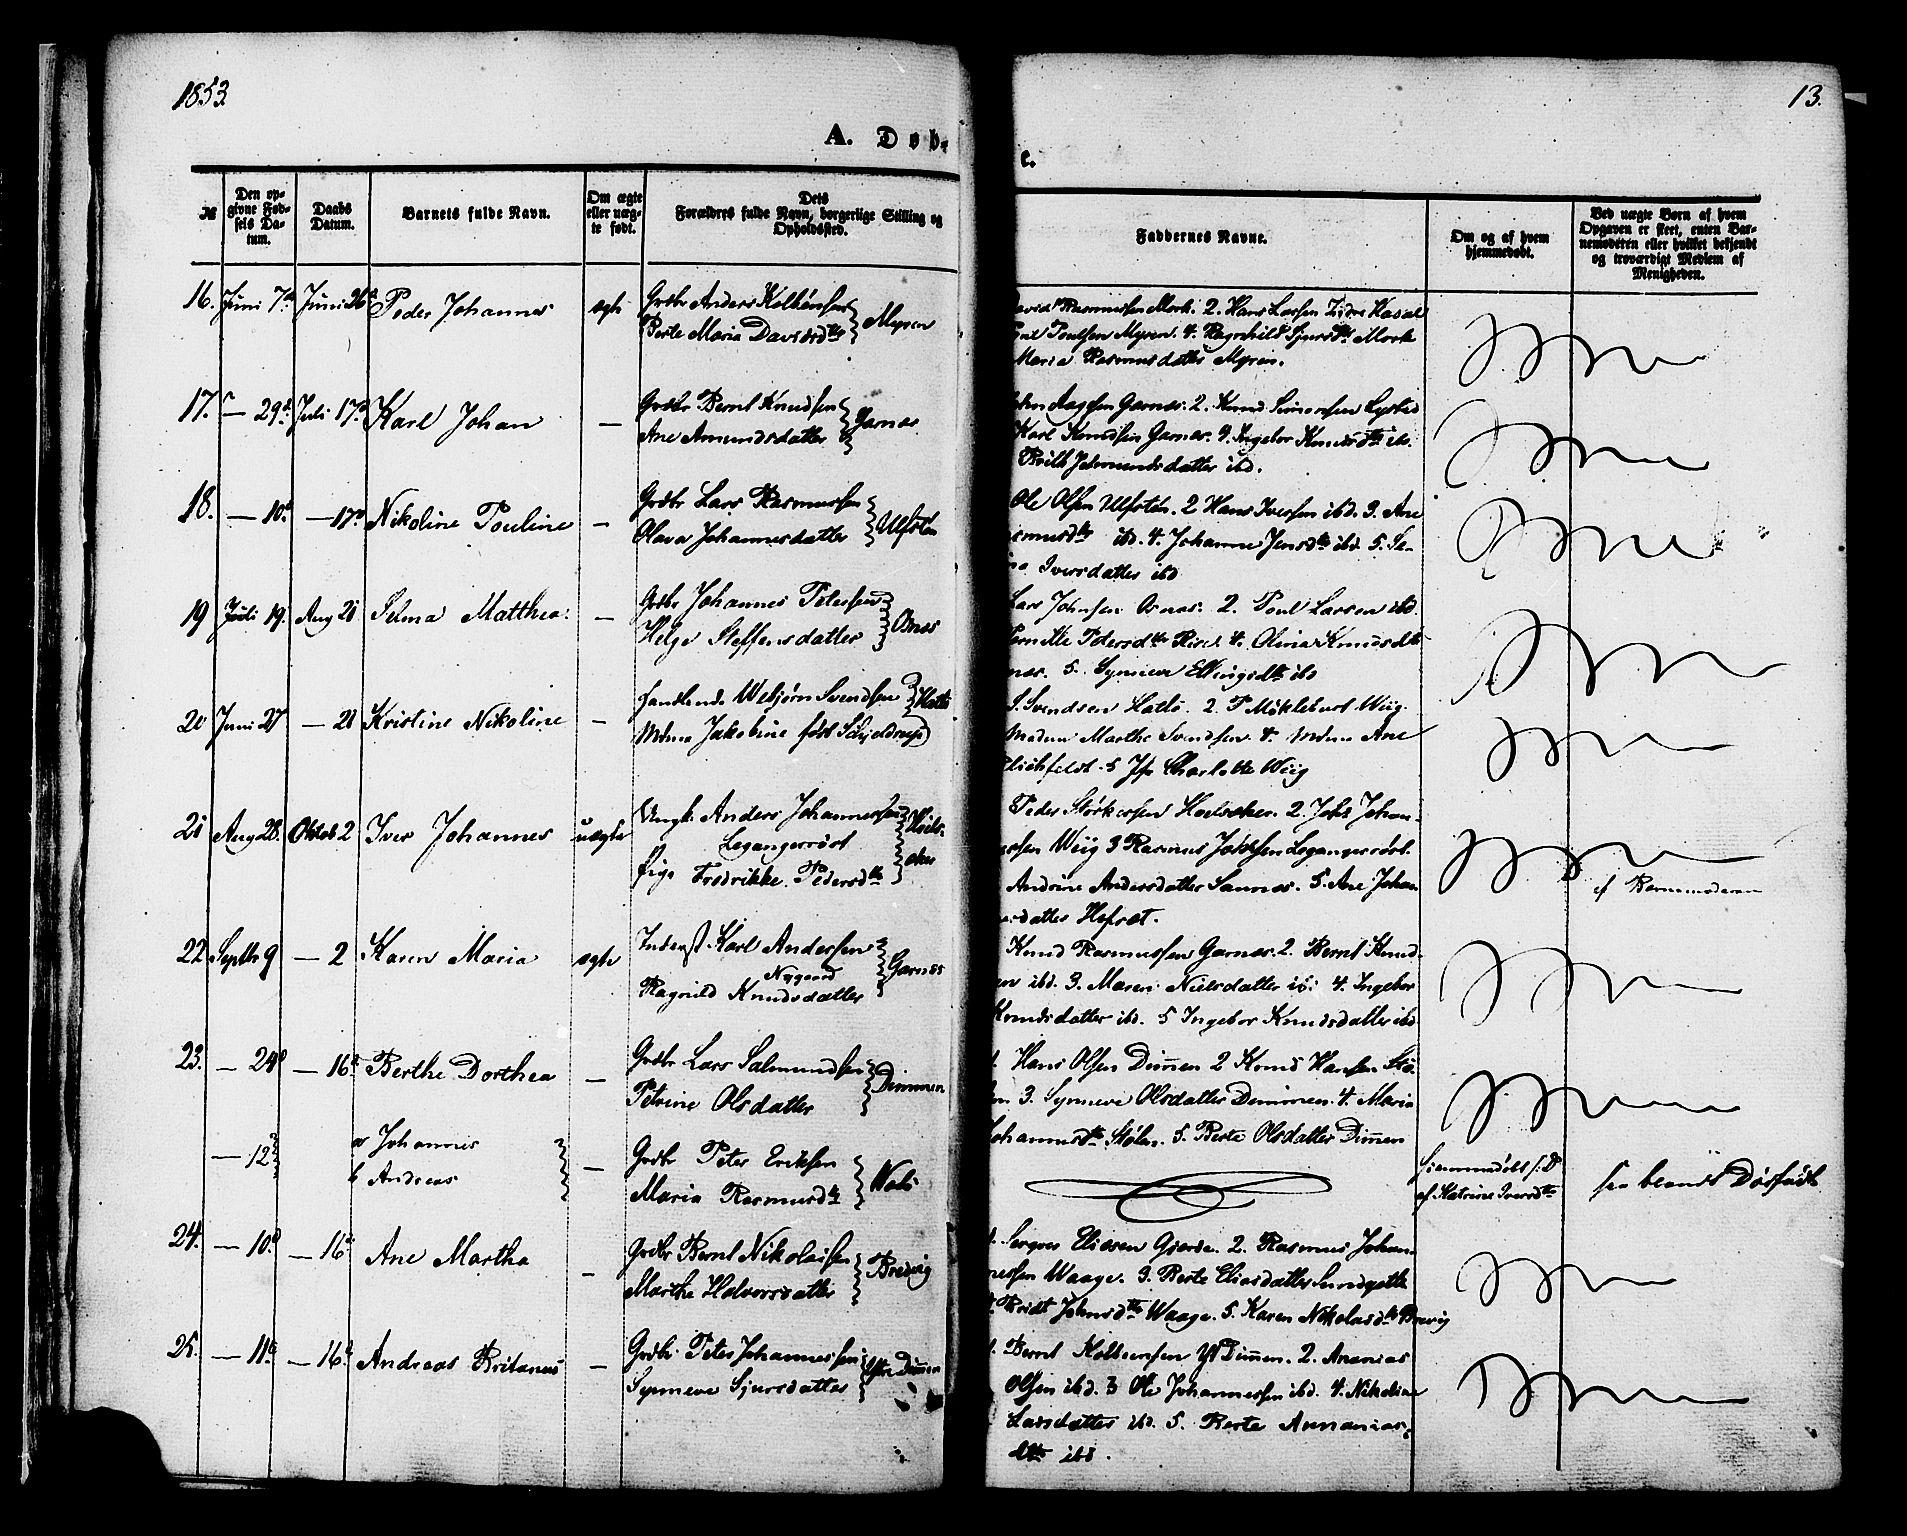 1853.
13.
A. Døb-
te.
№
Den op-
givne Fød-
sels Da-
tum.
Daabs
Datum.
Barnets fulde Navn.
Om ægte
eller uæg-
te født.
Dets
Forældres fulde Navn, borgerlige Stilling og
Opholdssted.
Faddernes Navne.
Om og af hvem
hjemmedøbt.
Ved uægte Børn af hvem
Opgaven er skeet, enten Bar-
nemoderen eller hvilket bekjendt
og troværdigt Medlem af
Menigheden.
16. Juni 7de Juni 26de Peder Johannes ægte Grdbr Anders Kolbensen
Berte Maria Davidsdtr Myren
David Rasmussen Mork. 2. Hans Larsen
Poul Poulsen Myren. 4. Ragnhild Sjursdtr Mork
Maria Rasmusdatter Myren.
17. — 29de Juli 17de Karl Johan — Grdbr Bernt Knudsen
Ane Amundsdatter Garnæs
Garnæs. 2. Knud Simonsen
Karl Knudsen Garnæs. Ingebor Knudsdtr ibd.
datter ibd.
18. — 10de — 17de Nikoline Pouline — Grdbr Lars Rasmussen
Olava Johannesdatter Ulfsten
Ole Olsen Ulfsten. 2 Hans Iversen ibd. 3. Ane
ibd. 4. Johanne Jensdtr ibd. 5. Se-
Iversdatter ibd
19 Juli 19. Aug 21 Selma Matthea. — Grdbr Johannes Petersen
Helge Steffensdatter Osnæs
Lars Johnsen Osnæs. 2. Poul Larsen ibd.
Pedersdtr 4. Olivia Knudsdtr
5. Synneve Ellingsdtr ibd
20 Juni 27 — 21 Kristine Nikoline — Handlende Webjørn Svendsen
Mdme Jakobine født Schjeldrup Hatlø
Svendsen Hatlø. 2. P Møklebust Wiig.
Madme Marthe Svendsen. 4. Mdme Ane
5 Jfr Charlotte Wiig
21 Aug 28. Oktob 2 Iver Johannes uægte Ungk. Anders Johannessen
Legangerrøst
Pige Fredrikke Pedersdtr
Peder Størkersen 2. Johs Johan-
nessen Wiig 3 Rasmus Legangerrøst.
Andrine Andersdatter 5. Ane Johan
datter
af Barnemoderen
22 Septbr 9 — 2 Karen Maria ægte Inderst. Karl Andersen
Nygaard
Ragnild Knudsdatter Garnæs
Knud Rasmussen Garnæs. 2. Bernt Knud-
sen ibd. 3. Maren Nielsdatter ibd 4. Ingebor
Knudsdatter ibd. 5 Ingebor Knudsdatter ibd
23. — 24de — 16de Berthe Dorthea — Grdbr Lars Salmundsen
Petrine Olsdatter Dimmen
1. Hans Olsen Dimmen 2 Knud Hansen Stø-
len. 3. Synneve Olsdatter Dimmen. 4. Maria
Johannesdtr Støln. 5. Berte Olsdatter Dimmen
— 12de a Johannes
b Andreas — Grdbr Peter Eriksen
Maria Rasmusdtr
Hjemmedøbt
af Katrine Iversdtr
see blandt Dødfødte
24. — 10de — 16de Ane Martha — Grdbr Bernt Nikolaisen
Marthe Halvorsdatter Brevig
Eliasen Gjerde. 2. Rasmus Johan-
nessen Waage. 3. Berte Eliasdatter
Johnsdtr Waage. 5. Karen Nikolaisdtr Brevig
25. — 11te — 16de Andreas Britanus — Grdbr Peter Johannessen
Synneve Sjursdatter Ytre Dimmen
1. Bernt Kolbensen Yt Dimmen. 2. Ananias
Olsen ibd. 3 Ole Johannessen ibd. 4. Nikoline
Larsdatter ibd. 5. Berte Annanias-
dtr ibd.